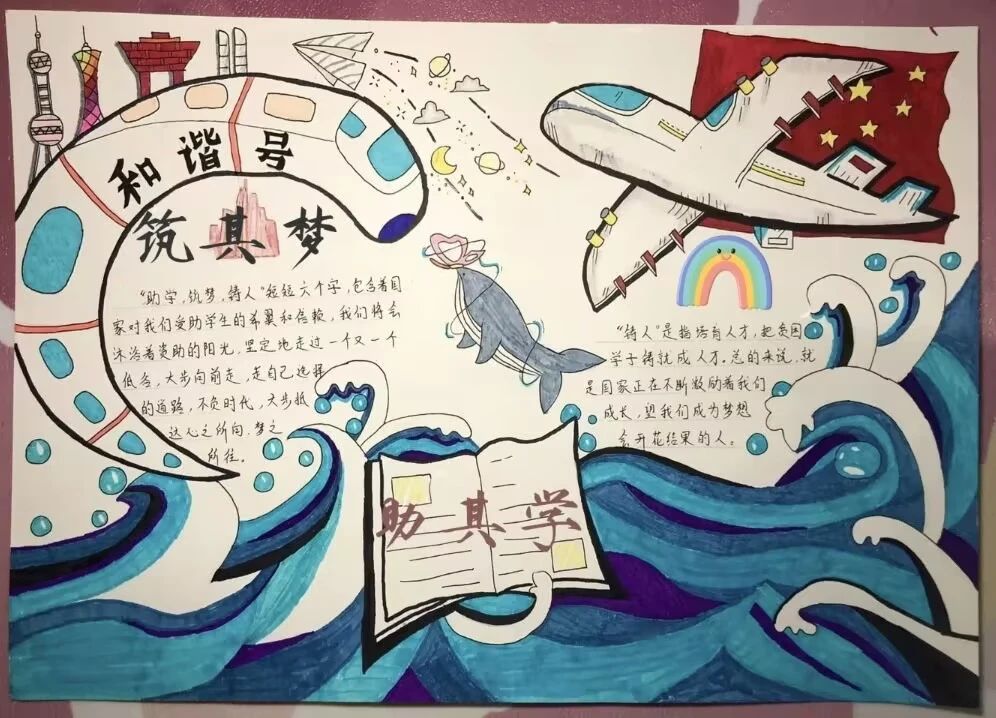 和谐号
筑其梦
“助学,筑梦,铸人”短短六个字,包含着国
家对我们受助学生的希翼和信赖,我们将会
沐浴着资助的阳光,坚定地走过一个又一个
低谷,大步向前走,走自己选择
的道路,不负时代,大步抵
达心之所向,梦之
所往。
“铸人”是指培育人才,把贫困
学子铸就成人才。总的来说,就
是国家正在不断激励着我们
成长,望我们成为梦想
会开花结果的人。
助其学